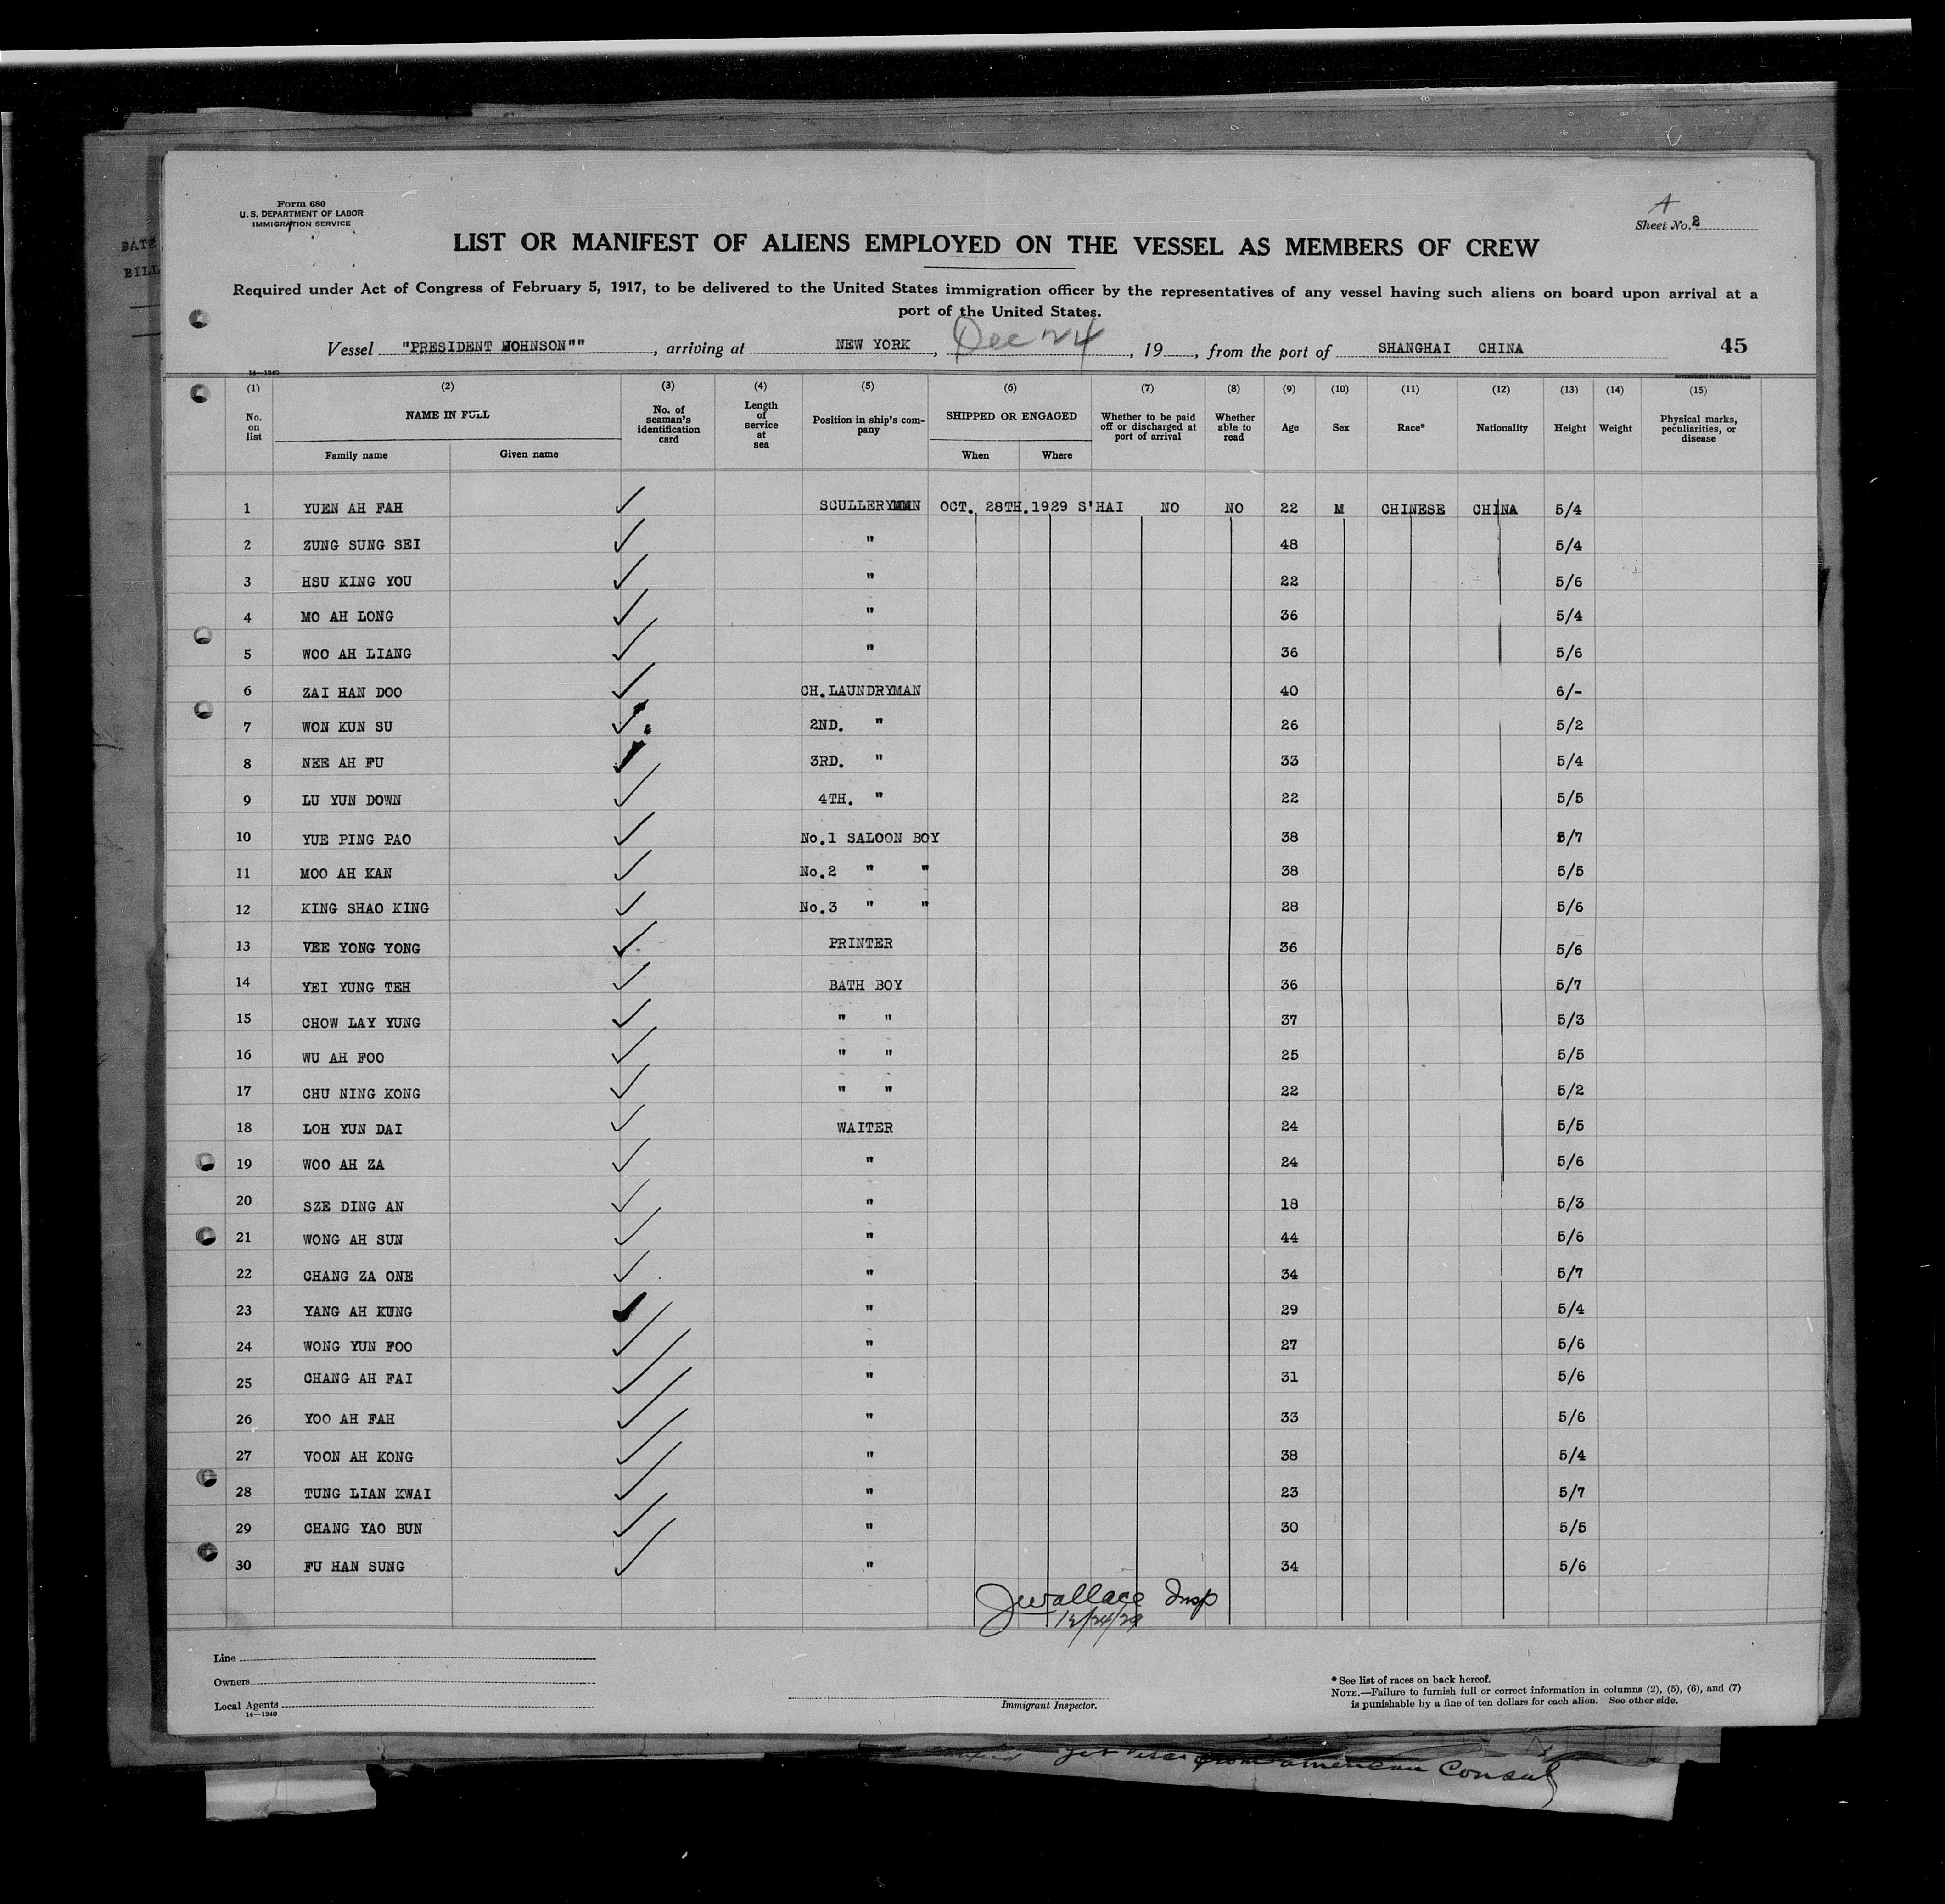 Form 680
U. S. DEPARTMENT OF LABOR
IMMIGRATION SERVICE
A
Sheet No. 2
DATE
BILL
LIST OR MANIFEST OF ALIENS EMPLOYED ON THE VESSEL AS MEMBERS OF CREW
Required under Act of Congress of February 5, 1917, to be delivered to the United States immigration officer by the representatives of any vessel having such aliens on board upon arrival at a
port of the United States.
Vessel "PRESIDENT JOHNSON"", arriving at NEW YORK, Dec 24, 19, from the port of SHANGHAI CHINA 45
14—1240
(1) (2) (3) (4) (5) (6) (7) (8) (9) (10) (11) (12) (13) (14) (15)
No. on list NAME IN FULL No. of seaman's identification card Length of service at sea Position in ship's company SHIPPED OR ENGAGED Whether to be paid off or discharged at port of arrival Whether able to read Age Sex Race* Nationality Height Weight Physical marks, peculiarities, or disease
Family name Given name When Where
1 YUEN AH FAH SCULLERYMAN OCT. 28TH.1929 S'HAI NO NO 22 M CHINESE CHINA 5/4
2 ZUNG SUNG SEI " 48 5/4
3 HSU KING YOU " 22 5/6
4 MO AH LONG " 36 5/4
5 WOO AH LIANG " 36 5/6
6 ZAI HAN DOO CH.LAUNDRYMAN 40 6/-
7 WON KUN SU 2ND. " 26 5/2
8 NEE AH FU 3RD. " 33 5/4
9 LU YUN DOWN 4TH. " 22 5/5
10 YUE PING PAO No.1 SALOON BOY 38 5/7
11 MOO AH KAN No.2 " " 38 5/5
12 KING SHAO KING No.3 " " 28 5/6
13 VEE YONG YONG PRINTER 36 5/6
14 YEI YUNG TEH BATH BOY 36 5/7
15 CHOW LAY YUNG " " 37 5/3
16 WU AH FOO " " 25 5/5
17 CHU NING KONG " " 22 5/2
18 LOH YUN DAI WAITER 24 5/5
19 WOO AH ZA " 24 5/6
20 SZE DING AN " 18 5/3
21 WONG AH SUN " 44 5/6
22 CHANG ZA ONE " 34 5/7
23 YANG AH KUNG " 29 5/4
24 WONG YUN FOO " 27 5/6
25 CHANG AH FAI " 31 5/6
26 YOO AH FAH " 33 5/6
27 VOON AH KONG " 38 5/4
28 TUNG LIAN KWAI " 23 5/7
29 CHANG YAO BUN " 30 5/5
30 FU HAN SUNG " 34 5/6
JWallace Insp
12/24/29
Line
Owners
Local Agents
14—1240
Immigrant Inspector.
* See list of races on back hereof.
NOTE.—Failure to furnish full or correct information in columns (2), (5), (6), and (7)
is punishable by a fine of ten dollars for each alien. See other side.
from american Consul